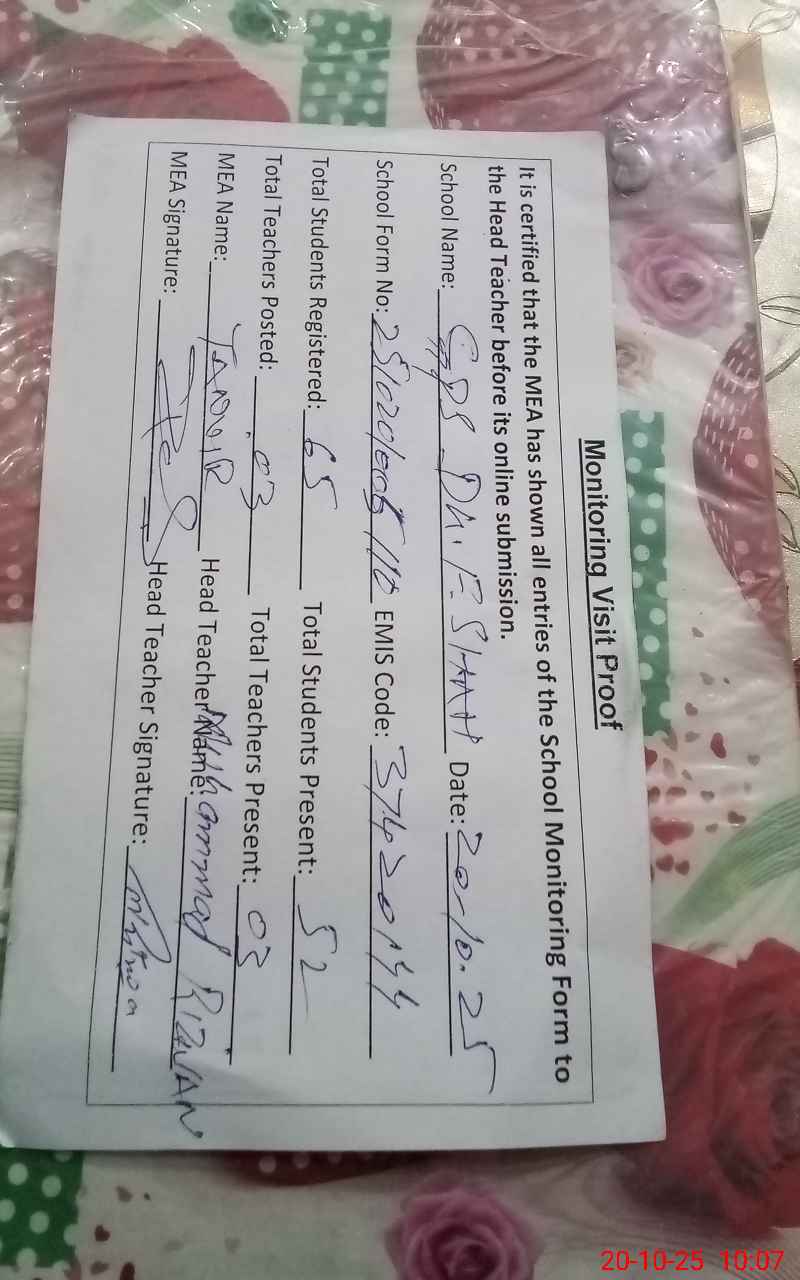 Monitoring Visit Proof
It is certified that the MEA has shown all entries of the School Monitoring Form to
the Head Teacher before its online submission.
School Name: GPS Date: 20-10-25
School Form No: EMIS Code: 37420144
Total Students Registered: 65 Total Students Present: 52
Total Teachers Posted: 03 Total Teachers Present: 03
MEA Name: TANVIR Head Teacher Name: Muhammad RIZWAN
MEA Signature: Head Teacher Signature:
20-10-25 10:07